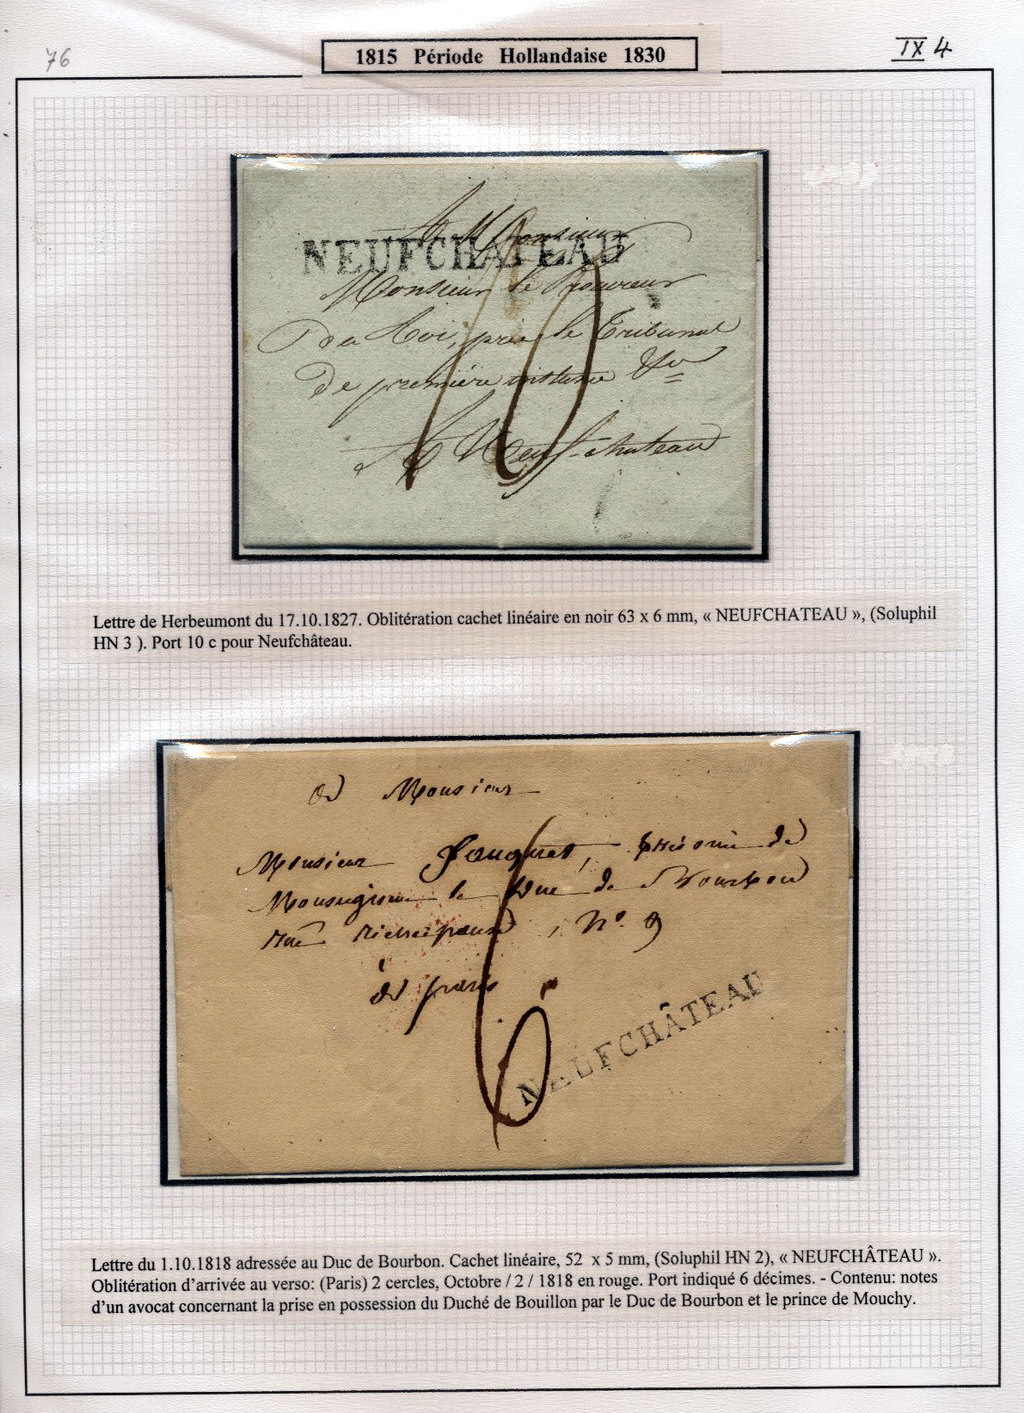 76
1815 Période Hollandaise 1830
IX 4
A Monsieur
NEUFCHATEAU
Monsieur le Procureur
Du Roi, près le Tribunal
De première instance &a
A Neufchateau
10
Lettre de Herbeumont du 17.10.1827. Oblitération cachet linéaire en noir 63 x 6 mm, « NEUFCHATEAU », (Soluphil
HN 3 ). Port 10 c pour Neufchâteau.
Monsieur
Monsieur Fouquet,
Monseigneur le Duc de Bourbon
Rue , N° 9
à paris
6
NEUFCHÂTEAU
Lettre du 1.10.1818 adressée au Duc de Bourbon. Cachet linéaire, 52 x 5 mm, (Soluphil HN 2), « NEUFCHÂTEAU ».
Oblitération d'arrivée au verso: (Paris) 2 cercles, Octobre / 2 / 1818 en rouge. Port indiqué 6 décimes. - Contenu: notes
d'un avocat concernant la prise en possession du Duché de Bouillon par le Duc de Bourbon et le prince de Mouchy.